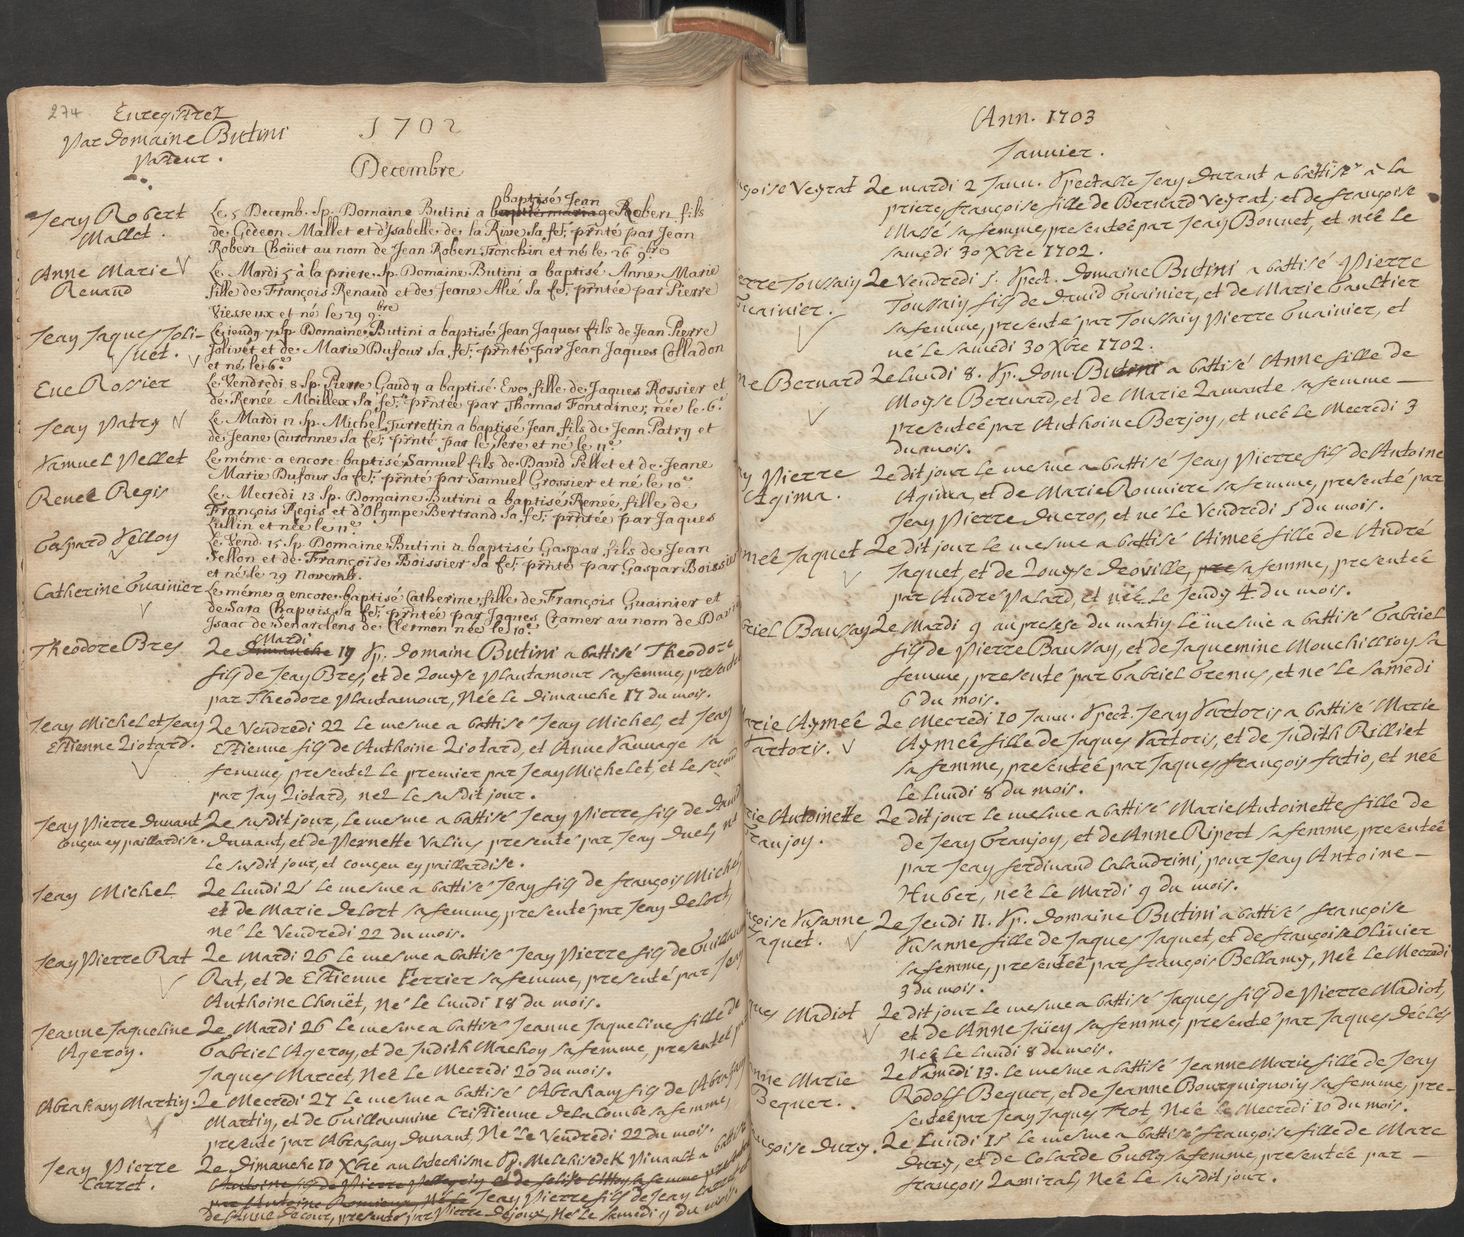 274
Enregistrez
Par Domaine Butini
Pasteur.
1702
Decembre
Jean Robert
Mallet.
Le 5 Decemb. Sp. Domaine Butini a baptisé Jean Robert fils
de Gedeon Mallet et d'Isabelle de la Rive sa fe, pñtê par Jean
Robert Choüet au nom de Jean Robert Tronchin et né le 26 9bre
Anne Marie
Renaud
Le Mardi 5 à la priere Sp. Domaine Butini a baptisé Anne Marie
fille de François Renaud et de Jeane Alié sa fe, pñtée par Pierre
Viesseux et né le 29 9bre
Jean Jaques Joli-
vet.
Le jeudy 7 Sp Domaine Butini a baptisé Jean Jaques fils de Jean Pierre
Jolivet et de Marie Dufour sa fe, pñté par Jean Jaques Colladon
et né le 6e
Eve Rossier
Le Vendredi 8 Sp. Pierre Gaudy a baptisé Eve fille de Jaques Rossier et
de Renée Moilleux sa fe, pñtée par Thomas Fontaine, née le 6e
Jean Patry
Le Mardi 12 Sp. Michel Turrettin a baptisé Jean fils de Jean Patry et
de Jeane Couronne sa fe, pñté par le Pere et né le 11e
Samuel Pellet
Le même a encore baptisé Samuel fils de David Pellet et de Jeane
Marie Dufour sa fe, pñté par Samuel Grossier et né le 10e
Renee Regis
Le Mecredi 13 Sp. Domaine Butini a baptisé Renée fille de
François Regis et d'Olympe Bertrand sa fe, pñtée par Jaques
Lullin et née le 11e
Gaspard Sellon
Le Vend. 15 Sp Domaine Butini a baptisé Gaspar fils de Jean
Sellon et de Françoise Boissier sa fe, pñté par Gaspar Boissier
et né le 29 Novemb.
Catherine Guainier
Le même a encore baptisé Catherine fille de François Guainier et
de Sara Chapuis sa fe, pñtée par Jaques Cramer au nom de David
Isaac de Senarclens de Clermon née le 10e
Theodore Bres
Le Mardi 19 Sp. Domaine Butini a battisé Theodore
fils de Jean Bres, et de Louyse Plantamour sa femme, presenté
par Theodore Plantamour, Né le Dimanche 17 du mois.
Jean Michel et Jean
Estienne Liotard.
Le Vendredi 22 le mesme a battisé Jean Michel, et Jean
Estienne fils de Anthoine Liotard, et Anne Sauvage sa
femme, presentez le premier par Jean Michelet, et le second
par Jay Liotard, nez le susdit jour.
Jean Pierre Dunant
conçeu en paillardise.
Le susdit jour, le mesme a battisé Jean Pierre fils de David
Dunant, et de Pernette Valier presenté par Jean Duch, né
le susdit jour, et conçeu en paillardise.
Jean Michel
Le Lundi 25 le mesme a battisé Jean fils de françois Michel
et de Marie Delort sa femme, presenté par Jean Delort,
né le Vendredi 22 du mois.
Jean Pierre Rat
Le Mardi 26 le mesme a battisé Jean Pierre fils de Guillaume
Rat, et de Estienne Ferrier sa femme, presenté par Jean
Anthoine Chouët, né le Lundi 18 du mois.
Jeanne Jaqueline
Ageron.
Le Mardi 26 le mesme a battisé Jeanne Jaqueline fille de
Gabriel Ageron, et de Judith Machon sa femme, presentée par
Jaques Marcet, Neé le Mecredi 20 du mois.
Abraham Martin.
Le Mecredi 27 le mesme a battisé Abraham fils de Abraham
Martin, et de Guillaumine Cristienne de la Combe sa femme,
presenté par Abraham Dunant, Né le Vendredi 22 du mois.
Jean Pierre
Carret.
Le Dimanche 10 Xbre au Catechisme Sp. Melchisedek Pinault a battisé
Jean Pierre fils de Jean Carret et
de Anne Decour, presenté par Pierre Dejoux, Né le Samedi 9 du mois.
Ann. 1703
Janvier.
çoise Veyrat
Le mardi 2 Janv. Spectable Jean Durant a battisé à la
priere, françoise fille de Bernard Veyrat, et de françoise
Massé sa femme, presentée par Jean Bonnet, et neé le
samedi 30 Xbre 1702.
erre Toussain
Guainier.
Le Vendredi 5. Spect. Domaine Butini a battisé Pierre
Toussain fils de David Guainier, et de Marie Gaultier
sa femme, presenté par Toussain Pierre Guainier, et
né le samedi 30 Xbre 1702.
ne Bernard
Le Lundi 8. Sp. Dom Butini a battisé Anne fille de
Moyse Bernard, et de Marie Lamante sa femme
presentée par Anthoine Berjon, et neé le Mecredi 3
du mois.
n Pierre
Agima.
Le dit jour le mesme a battisé Jean Pierre fils de Antoine
Agima, et de Marie Rouviere sa femme, presenté par
Jean Pierre Ducros, et né le Vendredi 5 du mois.
meé Jaquet
Le dit jour le mesme a battisé Aimeé fille de André
Jaquet, et de Louyse Deoville, sa femme, presentée
par André Valard, et neé le Jeudy 4 du mois.
riel Baussan
Le Mardi 9 au presche du matin le mesme a battisé Gabriel
fils de Pierre Baussan, et de Jaquemine Monchillion sa
femme, presenté par Gabriel Grenus, et né le samedi
6 du mois.
arie Aymeé
Sartoris.
Le Mecredi 10 Janv. Spect. Jean Sartoris a battisé Marie
Aymeé fille de Jaques Sartoris, et de Judith Rilliet
sa femme, presentée par Jaques françois fatio, et neé
le Lundi 8 du mois.
rie Antoinette
Granjon.
Le dit jour le mesme a battisé Marie Antoinette fille de
de Jean Granjon, et de Anne Ripert sa femme, presentée
par Jean ferdinand Calandrini, pour Jean Antoine
Huber, neé le Mardi 9 du mois.
nçoise Susanne
Jaquet.
Le Jeudi 11. Sp. Domaine Butini a battisé françoise
Susanne fille de Jaques Jaquet, et de françoise Olivier
sa femme, presentée par françois Bellamy, Neé le Mecredi
3 du mois.
ques Madiot
Le dit jour le mesme a battisé Jaques fils de Pierre Madiot,
et de Anne Jaïey sa femme, presenté par Jaques Decles
Neé le Lundi 8 du mois.
nne Marie
Bequer.
Le Samedi 13. le mesme a battisé Jeanne Marie fille de Jean
Rodolf Bequer, et de Jeanne Bourguignon sa femme, pre-
sentée par Jean Jaques Trot, Neé le Mecredi 10 du mois.
nçoise Dury.
Le Lundi 15 le mesme a battisé françoise fille de Marc
Dury, et de Colarde Gubly sa femme, presentée par
françois Lamiral, Neé le susdit jour.